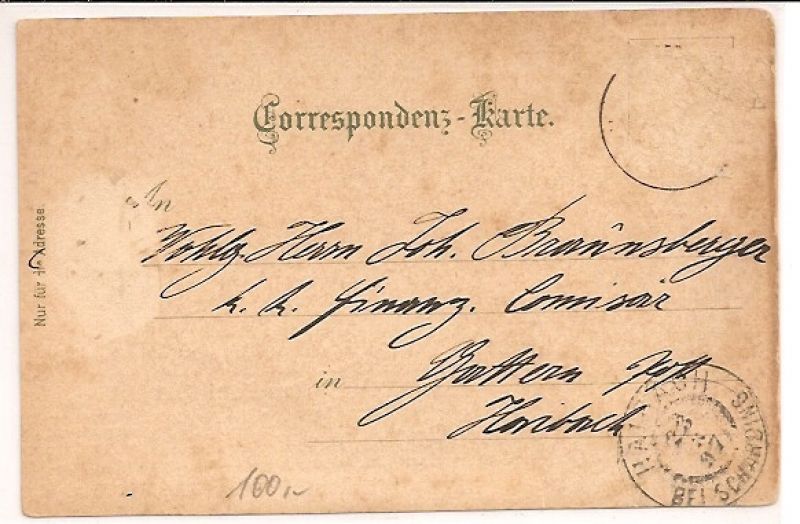 Correspondenz-Karte.
Nur für die Adresse.
An
Wohlg. Herrn Joh. Braunsberger
k. k. Finanz. Comisär
in Gattern Post
Haibach
HAIBACH
BEI SCHÄRDING
97
100,-